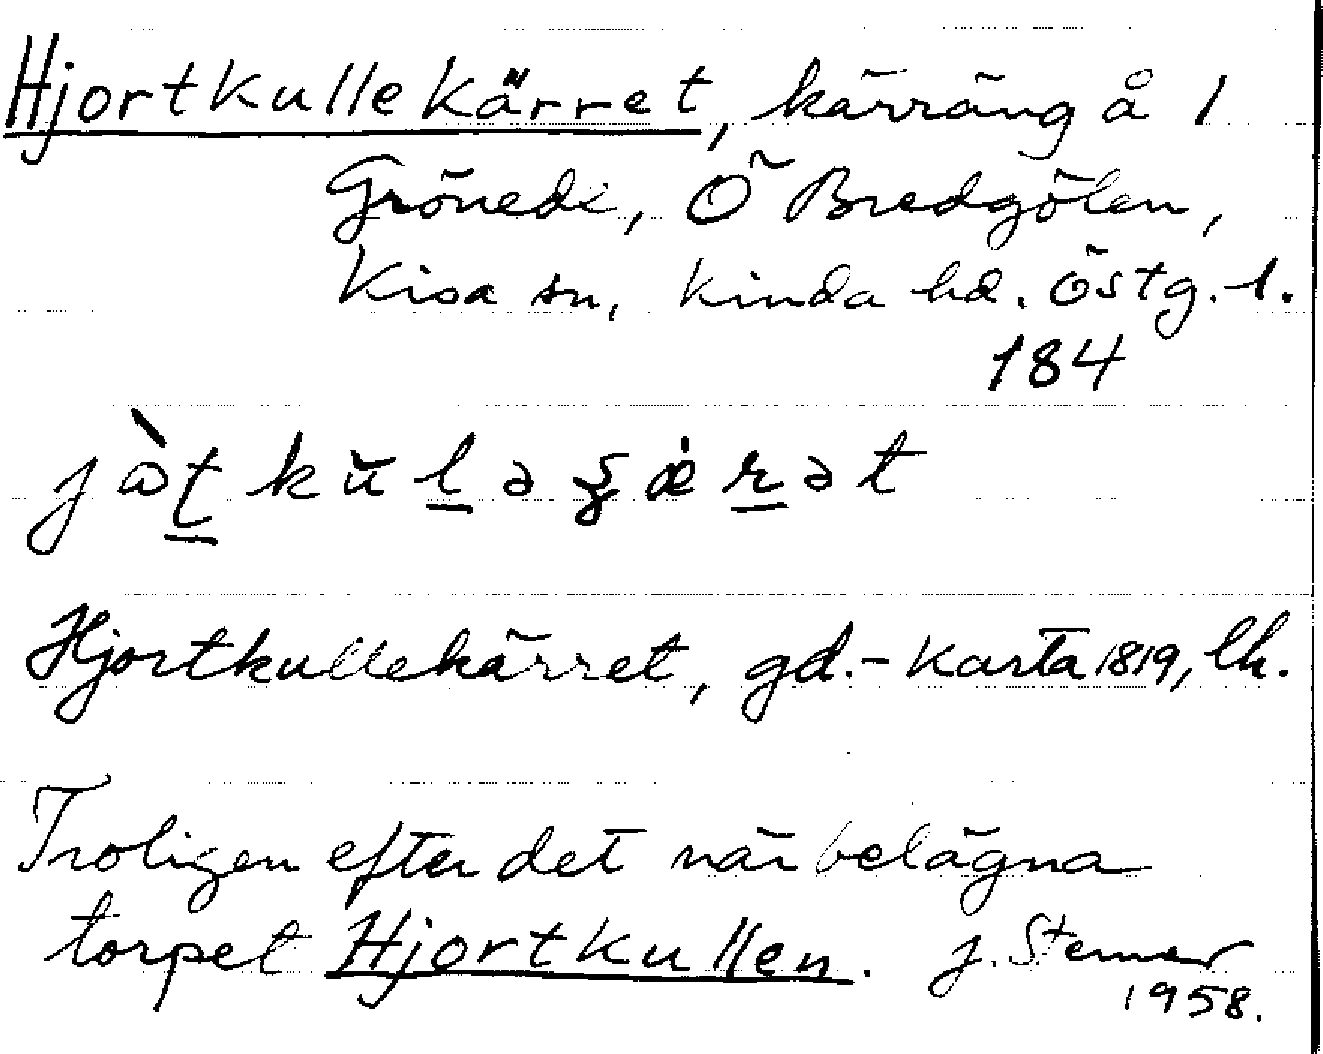 Hjortkullekärret, kärräng å 1
Grönede, Ö Bredgölen,
Kisa sn, Kinda hd. Östg. l.
184
Hjortkullekärret, gd.-karta 1819, lh.
Troligen efter det närbelägna
torpet Hjortkullen. J.
1958.